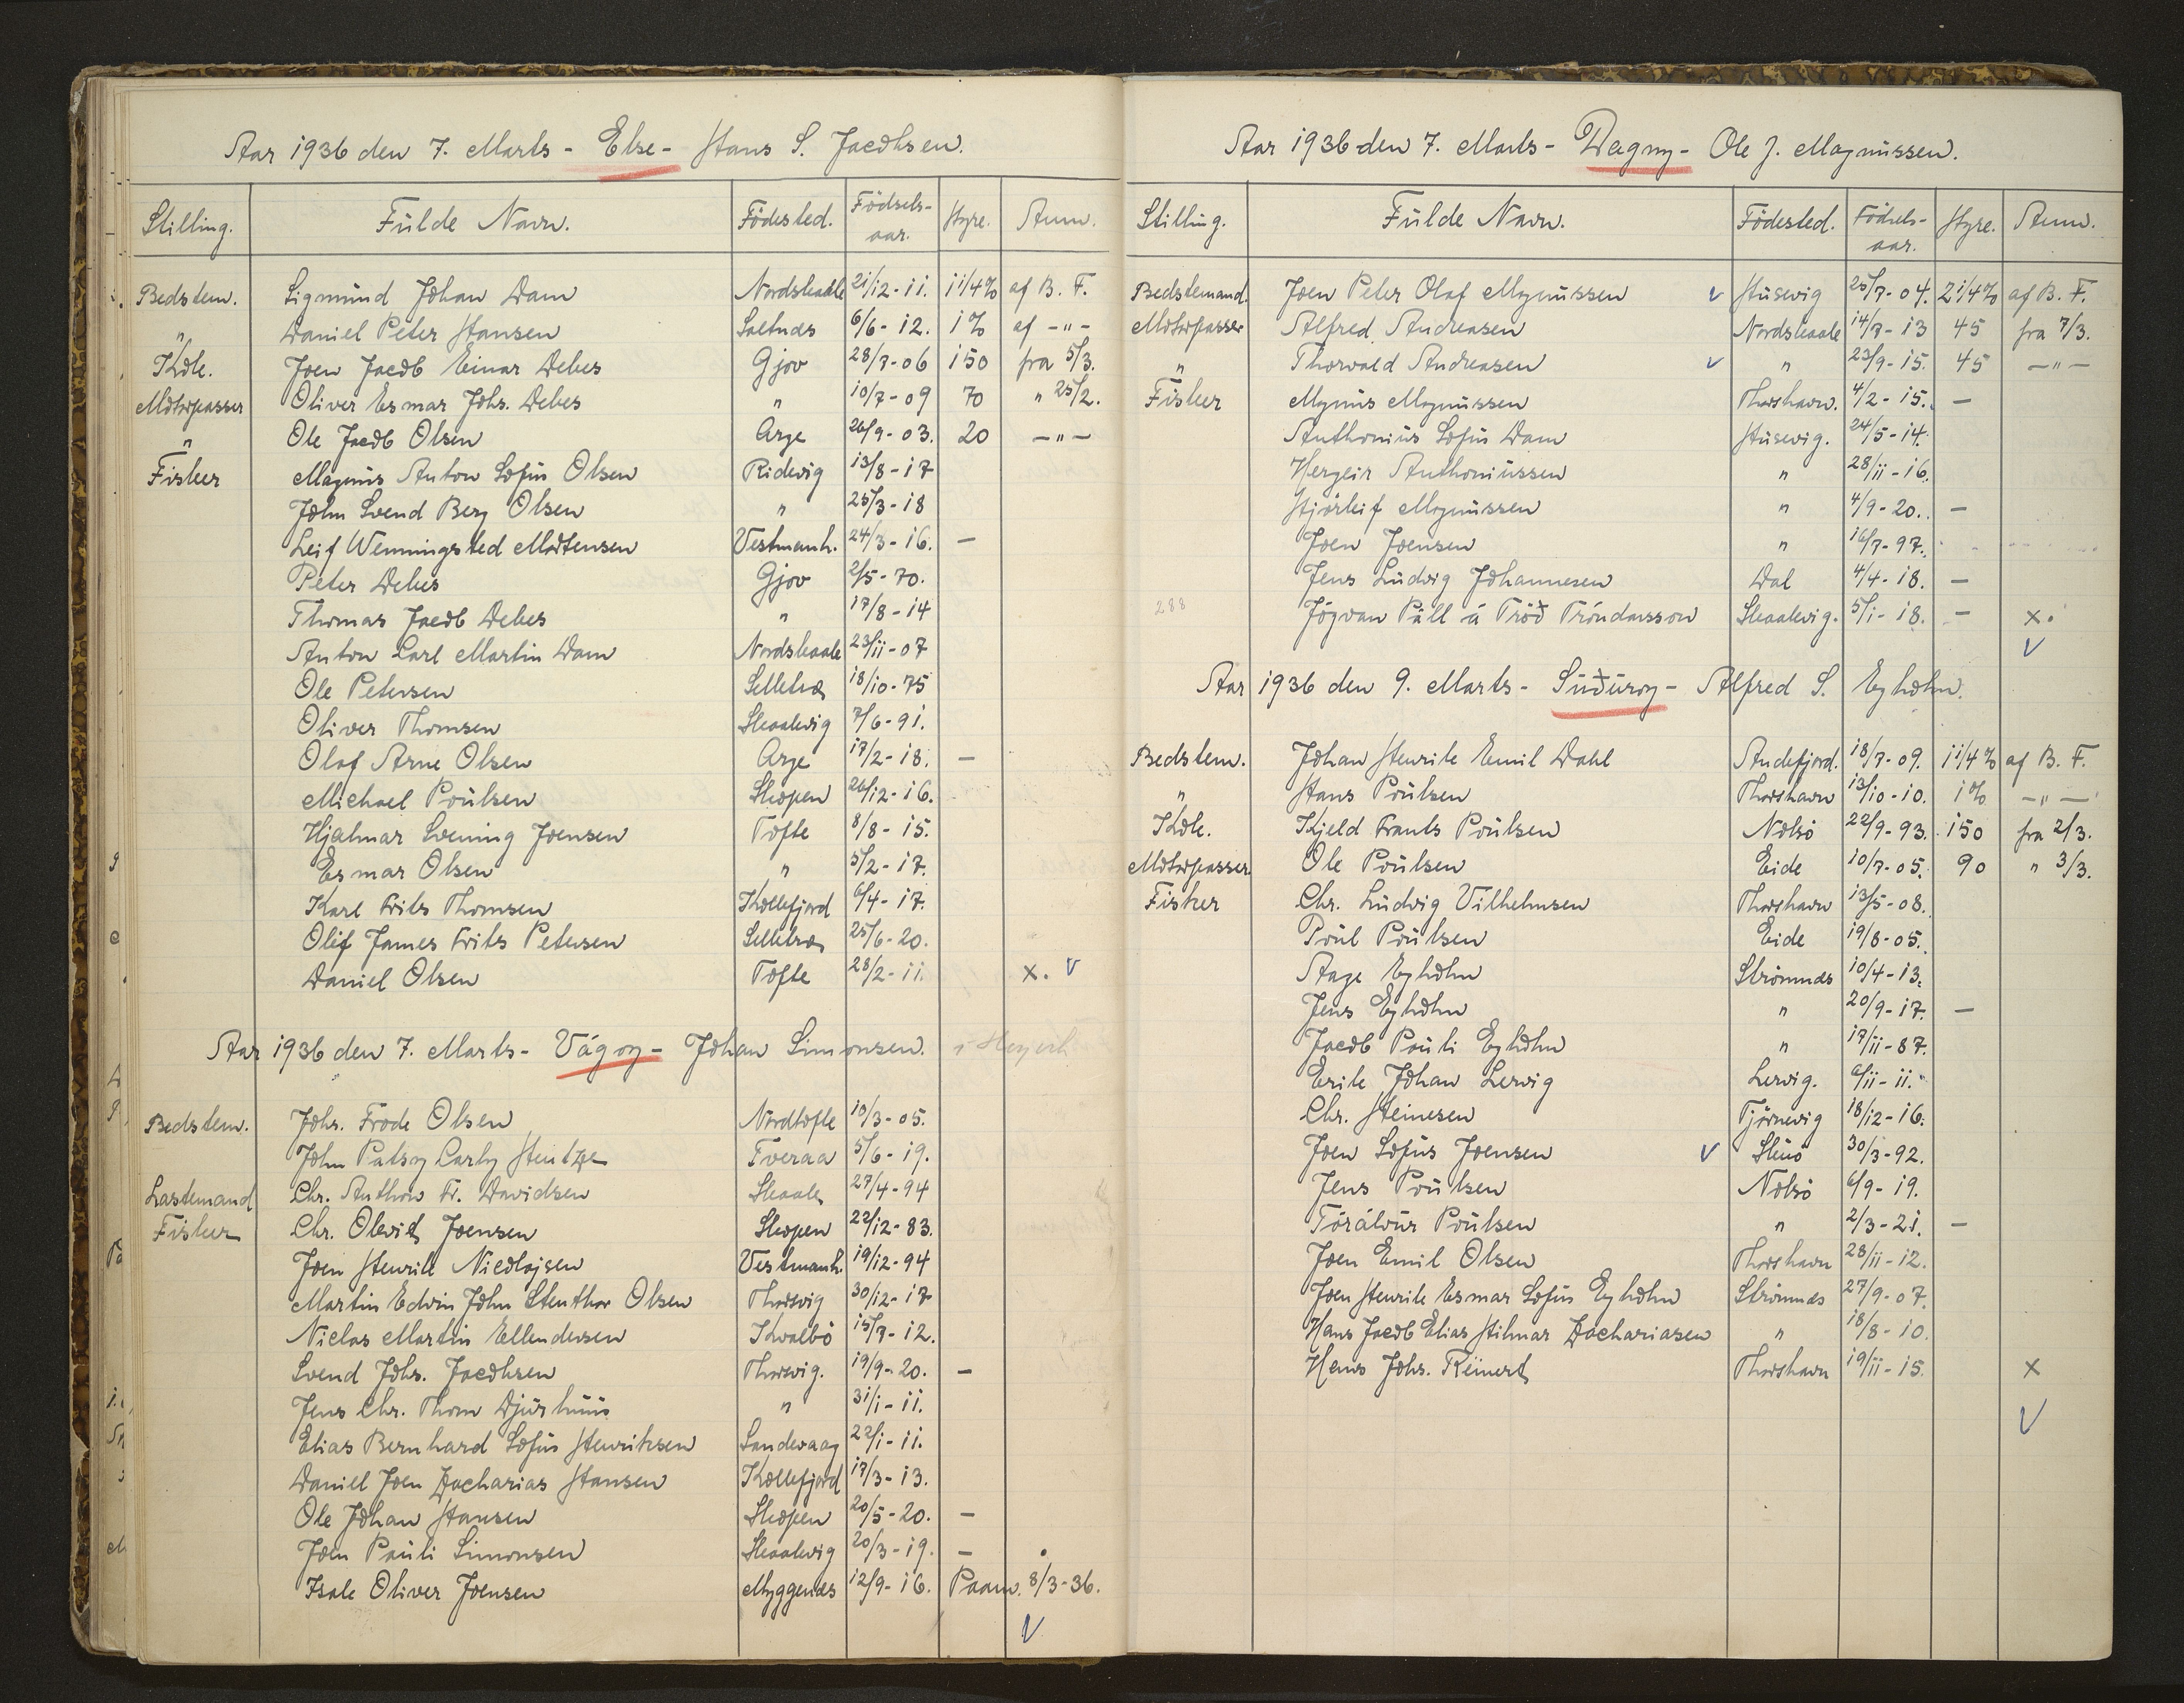 Aar 1936 den 7. Marts - Else - Hans S. Jacobsen.
Stilling. Fulde Navn. Födested. Födsels-aar. Hyre. Anm.
Bedstem. Sigmund Johan Dam Nordskaale 21/12-11. 1 1/4% af B. F.
" Daniel Peter Hansen Saltnes 6/6-12. 1% af -"-
Kok. Joen Jacob Einar Debes Gjov 28/7-06 150 fra 5/3.
Motorpasser Oliver Esmar Johs. Debes " 10/7-09 70 " 25/2.
" Ole Jacob Olsen Arge 26/9-03. 20 -"-
Fisker Magnus Anton Sofus Olsen Ridevig 13/8-17
John Svend Berg Olsen " 25/3-18
Leif Wenningsted Mortensen Vestmanh. 24/3-16. -
Peter Debes Gjov 2/5-70.
Thomas Jacob Debes " 17/8-14
Anton Carl Martin Dam Nordskaale 23/11-07
Ole Petersen Selletræ 18/10-75
Oliver Thomsen Skaalevig 7/6-91.
Olaf Arne Olsen Arge 17/2-18. -
Michael Poulsen Skopen 26/12-16.
Hjalmar Svening Joensen Tofte 8/8-15.
Esmar Olsen " 5/2-17.
Karl Frits Thomsen Kollefjord 6/4-17.
Olif James Frits Petersen Selletræ 25/6-20.
Daniel Olsen Tofte 28/2-11. x. V
Aar 1936 den 7. Marts - Vágoy - Johan Simonsen.
Bedstem. Johs. Frode Olsen Nordtofte 10/3-05.
John Patsy Carly Hentze Tveraa 5/6-19.
Lastemand Chr. Anthon Fr. Davidsen Skaale 27/4-94
Fisker Chr. Olevil Joensen Skopen 22/12-83.
Joen Henrik Nicolajsen Vestmanh. 19/12-94
Martin Edvin John Stenthor Olsen Thorsvig 30/12-17
Niclas Martin Ellendersen Kvalbö 15/7-12.
Svend Johs. Jacobsen Thorsvig. 19/9-20. -
Jens Chr. Thom Djurhuus " 31/1-11.
Elias Bernhard Sofus Henriksen Sandevaag 22/1-11.
Daniel Joen Zacharias Hansen Kollefjord 17/3-13.
Ole Johan Hansen Skopen 20/5-20. -
Joen Pauli Simonsen Skaalevig 20/3-19. -
Isak Oliver Joensen Myggenes 12/9-16. Paam. 8/3-36.
V
Aar 1936 den 7. Marts - Dagny - Ole J. Magnussen.
Stilling. Fulde Navn. Födested. Födsels-aar. Hyre. Anm.
Bedstemand. Joen Peter Olaf Magnussen V Husevig 25/7-04. 2 1/4% af B. F.
Motorpasser Alfred Andreasen Nordskaale 14/7-13 45 fra 7/3.
" Thorvald Andreasen V " 23/9-15. 45 -"-
Fisker Magnus Magnussen Thorshavn. 4/2-15. -
Anthonius Sofus Dam Husevig. 24/5-14.
Hergeir Anthoniussen " 28/11-16.
Hjörleif Magnussen " 4/9-20. -
Joen Joensen " 16/7-97.
Jens Ludvig Johannesen Dal 4/4-18. -
288 Jógvan Páll á Tröð Tróndarsson Skaalevig. 5/1-18. - x.
V
Aar 1936 den 9. Marts - Suðuroy - Alfred S. Eyholm.
Bedstem. Johan Henrik Emil Dahl Andefjord. 18/7-09. 1 1/4% af B. F.
" Hans Poulsen Thorshavn 13/10-10. 1% -"-
Kok. Kjeld Frants Poulsen Nolsö 22/9-93. 150 fra 2/3.
Motorpasser Ole Poulsen Eide 10/7-05. 90 " 3/3.
Fisker Chr. Ludvig Vilhelmsen Thorshavn 13/5-08.
Poul Poulsen Eide 19/8-05.
Aage Eyholm Strömnes 10/4-13.
Jens Eyholm " 20/9-17. -
Jacob Pauli Eyholm " 17/11-87.
Erik Johan Lervig Lervig. 6/11-11.
Chr. Heinesen Tjörnevig 18/12-16.
Joen Sofus Joensen V Skuö 30/3-92.
Jens Poulsen Nolsö 6/9-19.
Tórálvur Poulsen " 2/3-21. -
Joen Emil Olsen Thorshavn 28/11-12.
Joen Henrik Esmar Sofus Eyholm Strömnes 27/9-07.
Hans Jacob Elias Hilmar Zachariasen " 18/8-10.
Hans Johs. Reinert Thorshavn 19/11-15. x
V